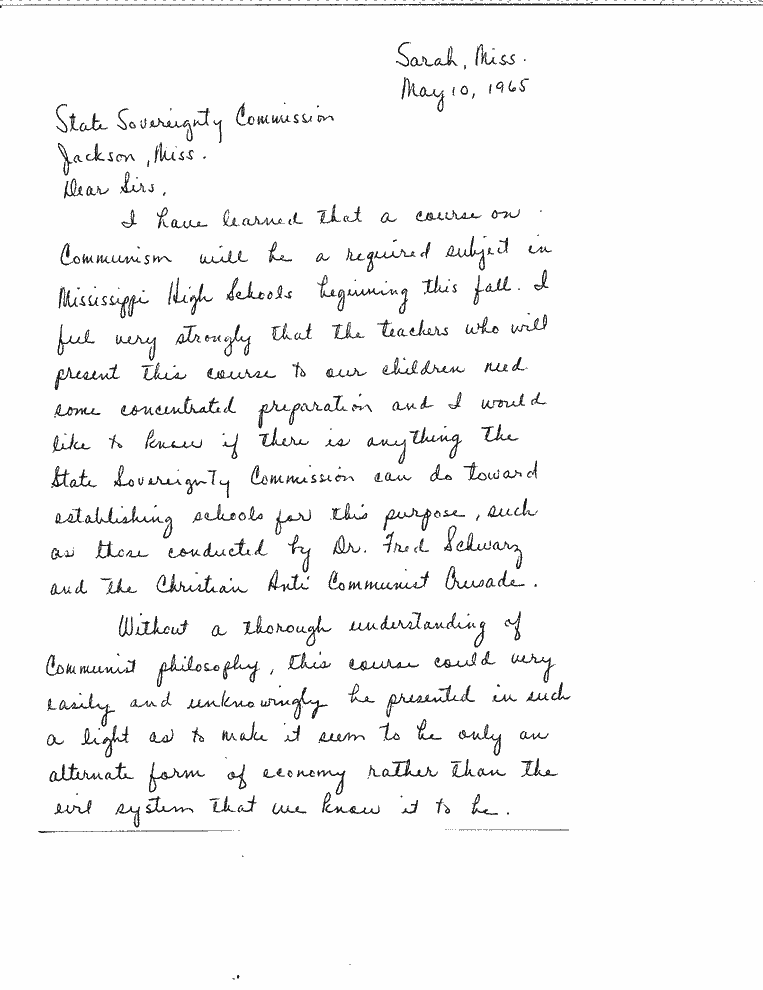 Sarah, Miss.
May 10, 1965
State Sovereignty Commission
Jackson, Miss.
Dear Sirs,
I have learned that a course on
Communism will be a required subject in
Mississippi High Schools beginning this fall. I
feel very strongly that the teachers who will
present this course to our children need
some concentrated preparation and I would
like to know if there is anything the
State Sovereignty Commission can do toward
establishing schools for this purpose, such
as those conducted by Dr. Fred Schwarz
and the Christian Anti Communist Crusade.
Without a thorough understanding of
Communist philosophy, this course could very
easily and unknowingly be presented in such
a light as to make it seem to be only an
alternate form of economy rather than the
evil system that we know it to be.